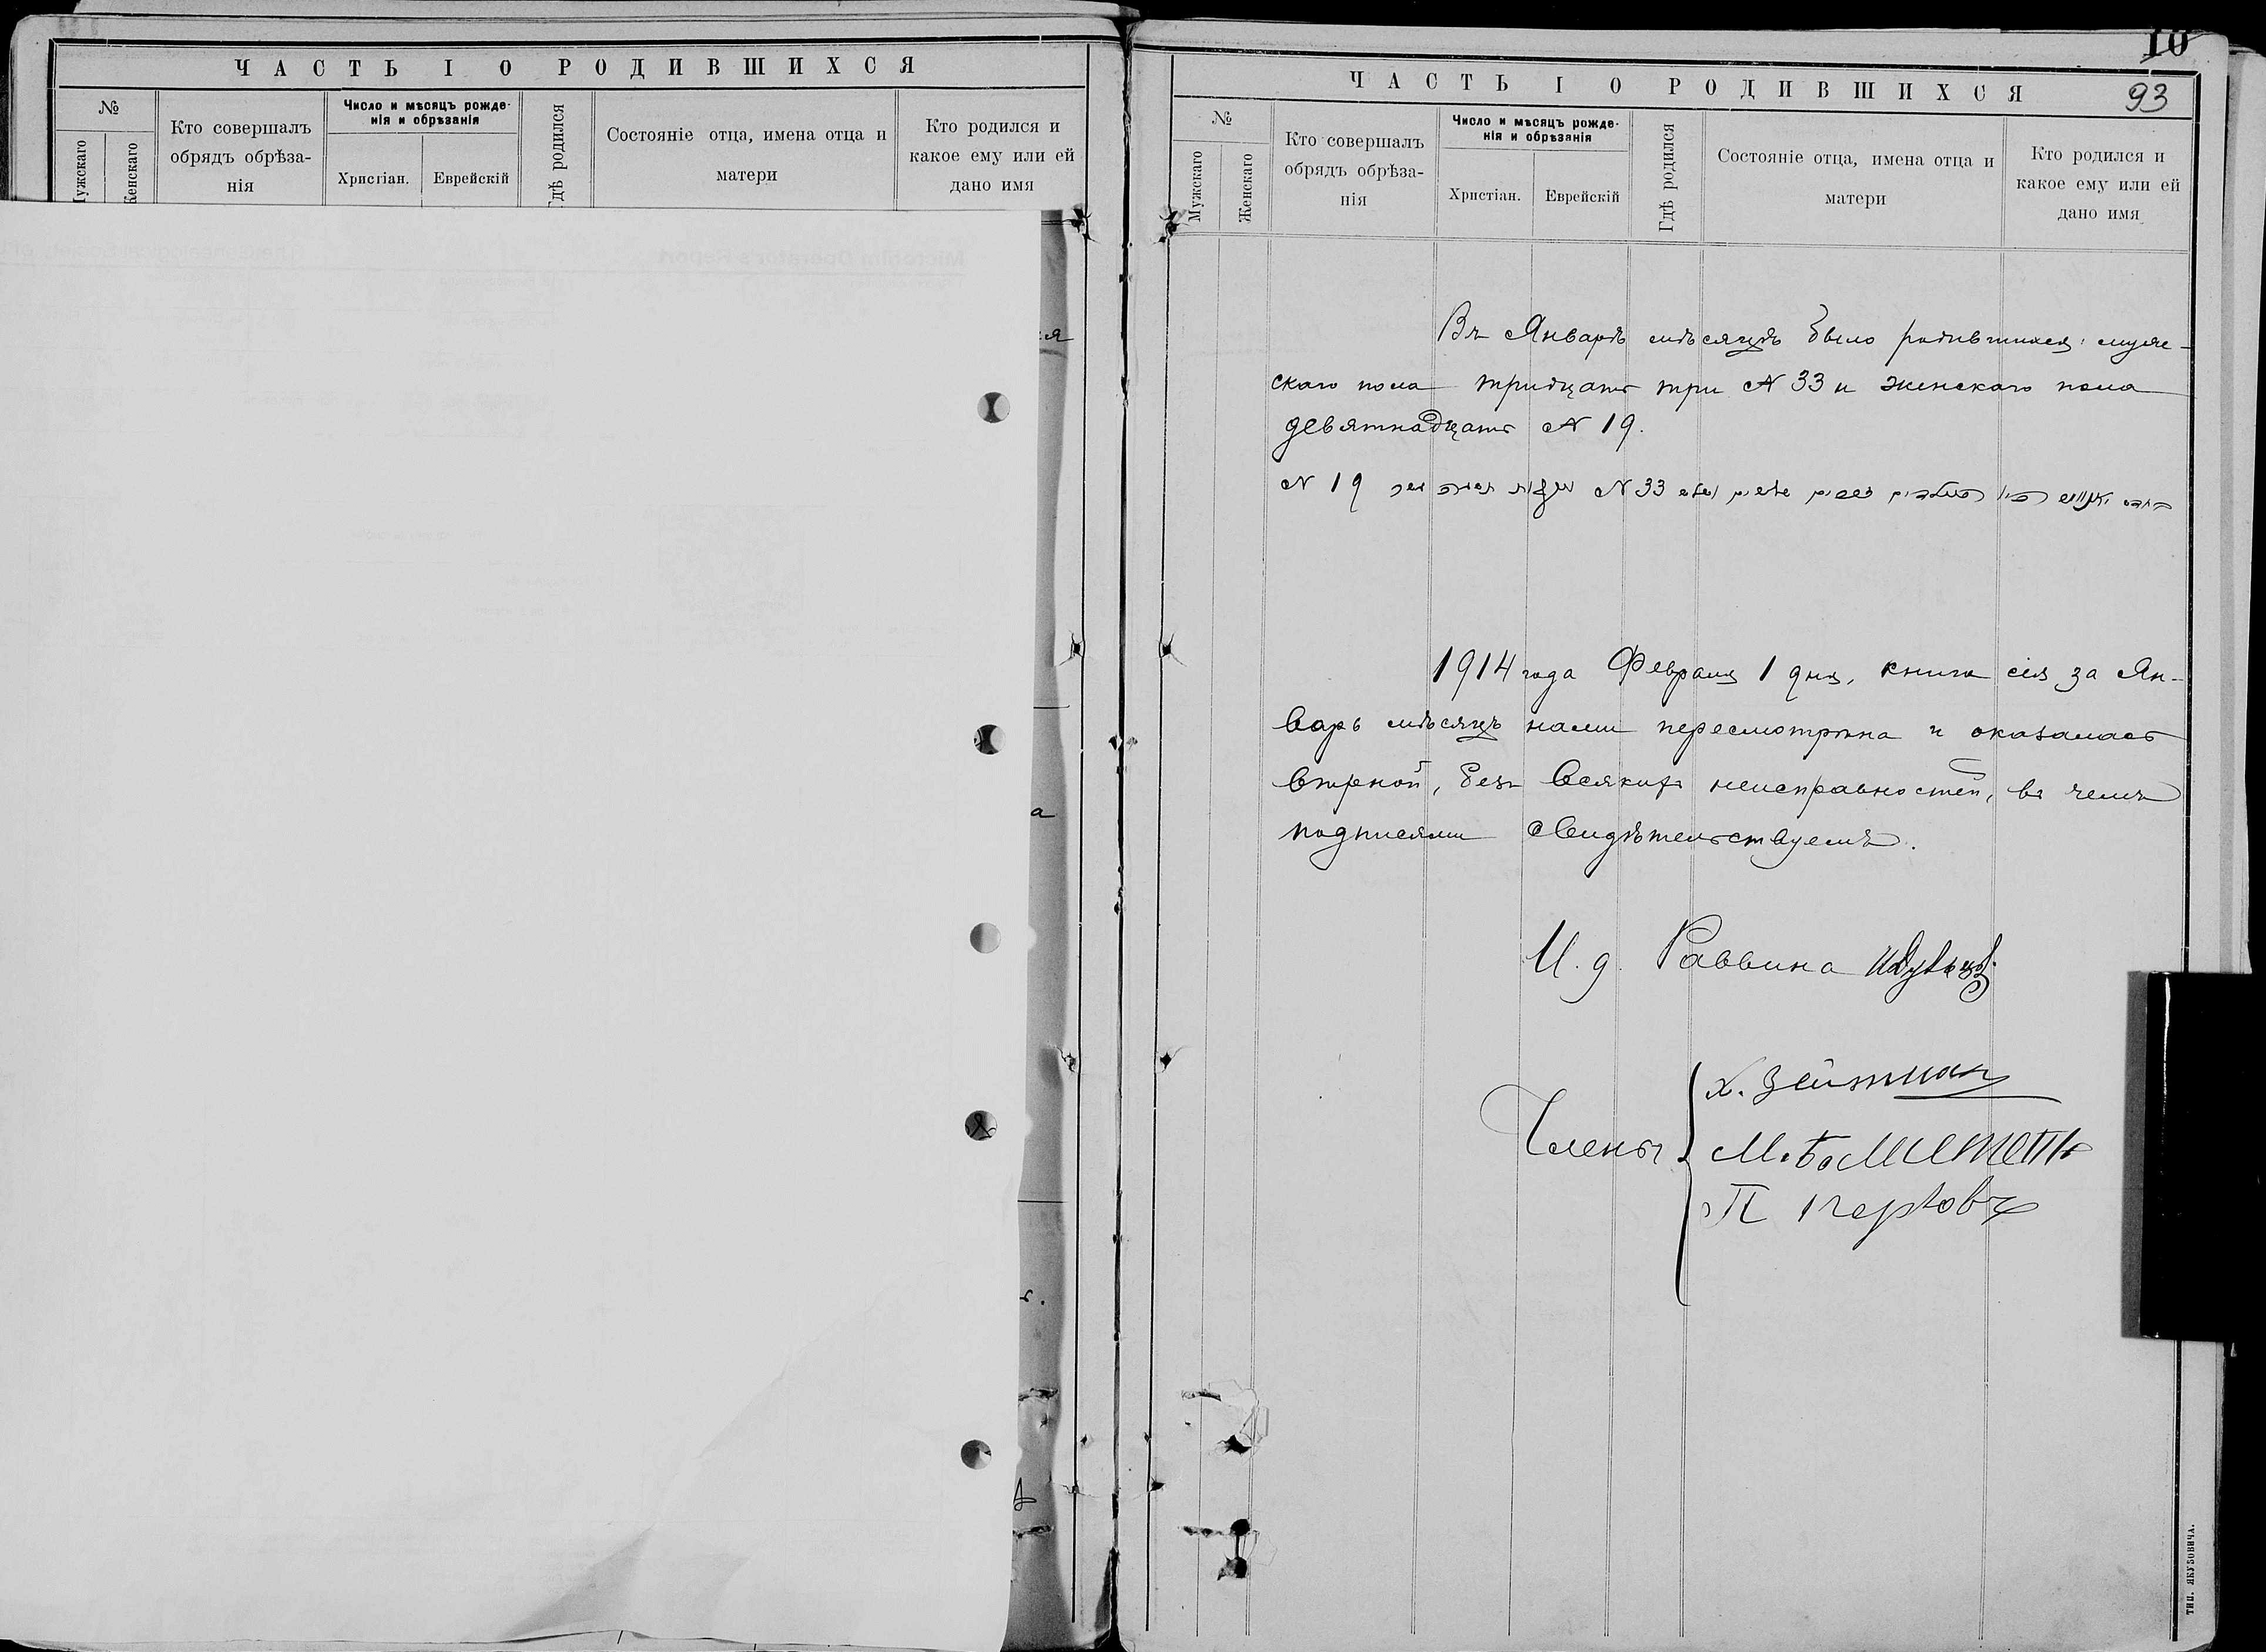 ЧАСТЬ I О РОДИВШИХСЯ
№
Мужскаго
Женскаго
Кто совершалъ
обрядъ обрѣза-
нія
Число и мѣсяцъ рожде-
нія и обрѣзанія
Христіан.
Еврейскій
Гдѣ родился
Состояніе отца, имена отца и
матери
Кто родился и
какое ему или ей
дано имя
10
ЧАСТЬ I О РОДИВШИХСЯ
93
№
Мужскаго
Женскаго
Кто совершалъ
обрядъ обрѣза-
нія
Число и мѣсяцъ рожде-
нія и обрѣзанія
Христіан.
Еврейскій
Гдѣ родился
Состояніе отца, имена отца и
матери
Кто родился и
какое ему или ей
дано имя
Въ Январѣ мѣсяцѣ было родившихся: муже-
скаго пола тридцать три № 33 и женскаго пола
девятнадцать № 19.
№ 19 № 33
1914 года Февраля 1 дня, книга сія за Ян-
варь мѣсяцъ нами пересмотрѣна и оказалась
вѣрной, безъ всякихъ неисправностей, въ чемъ
подписями свидѣтельствуемъ.
И. д. Раввина
Члены
Х. Зейтман
М.
П
ТИП. ЯКУБОВИЧА.